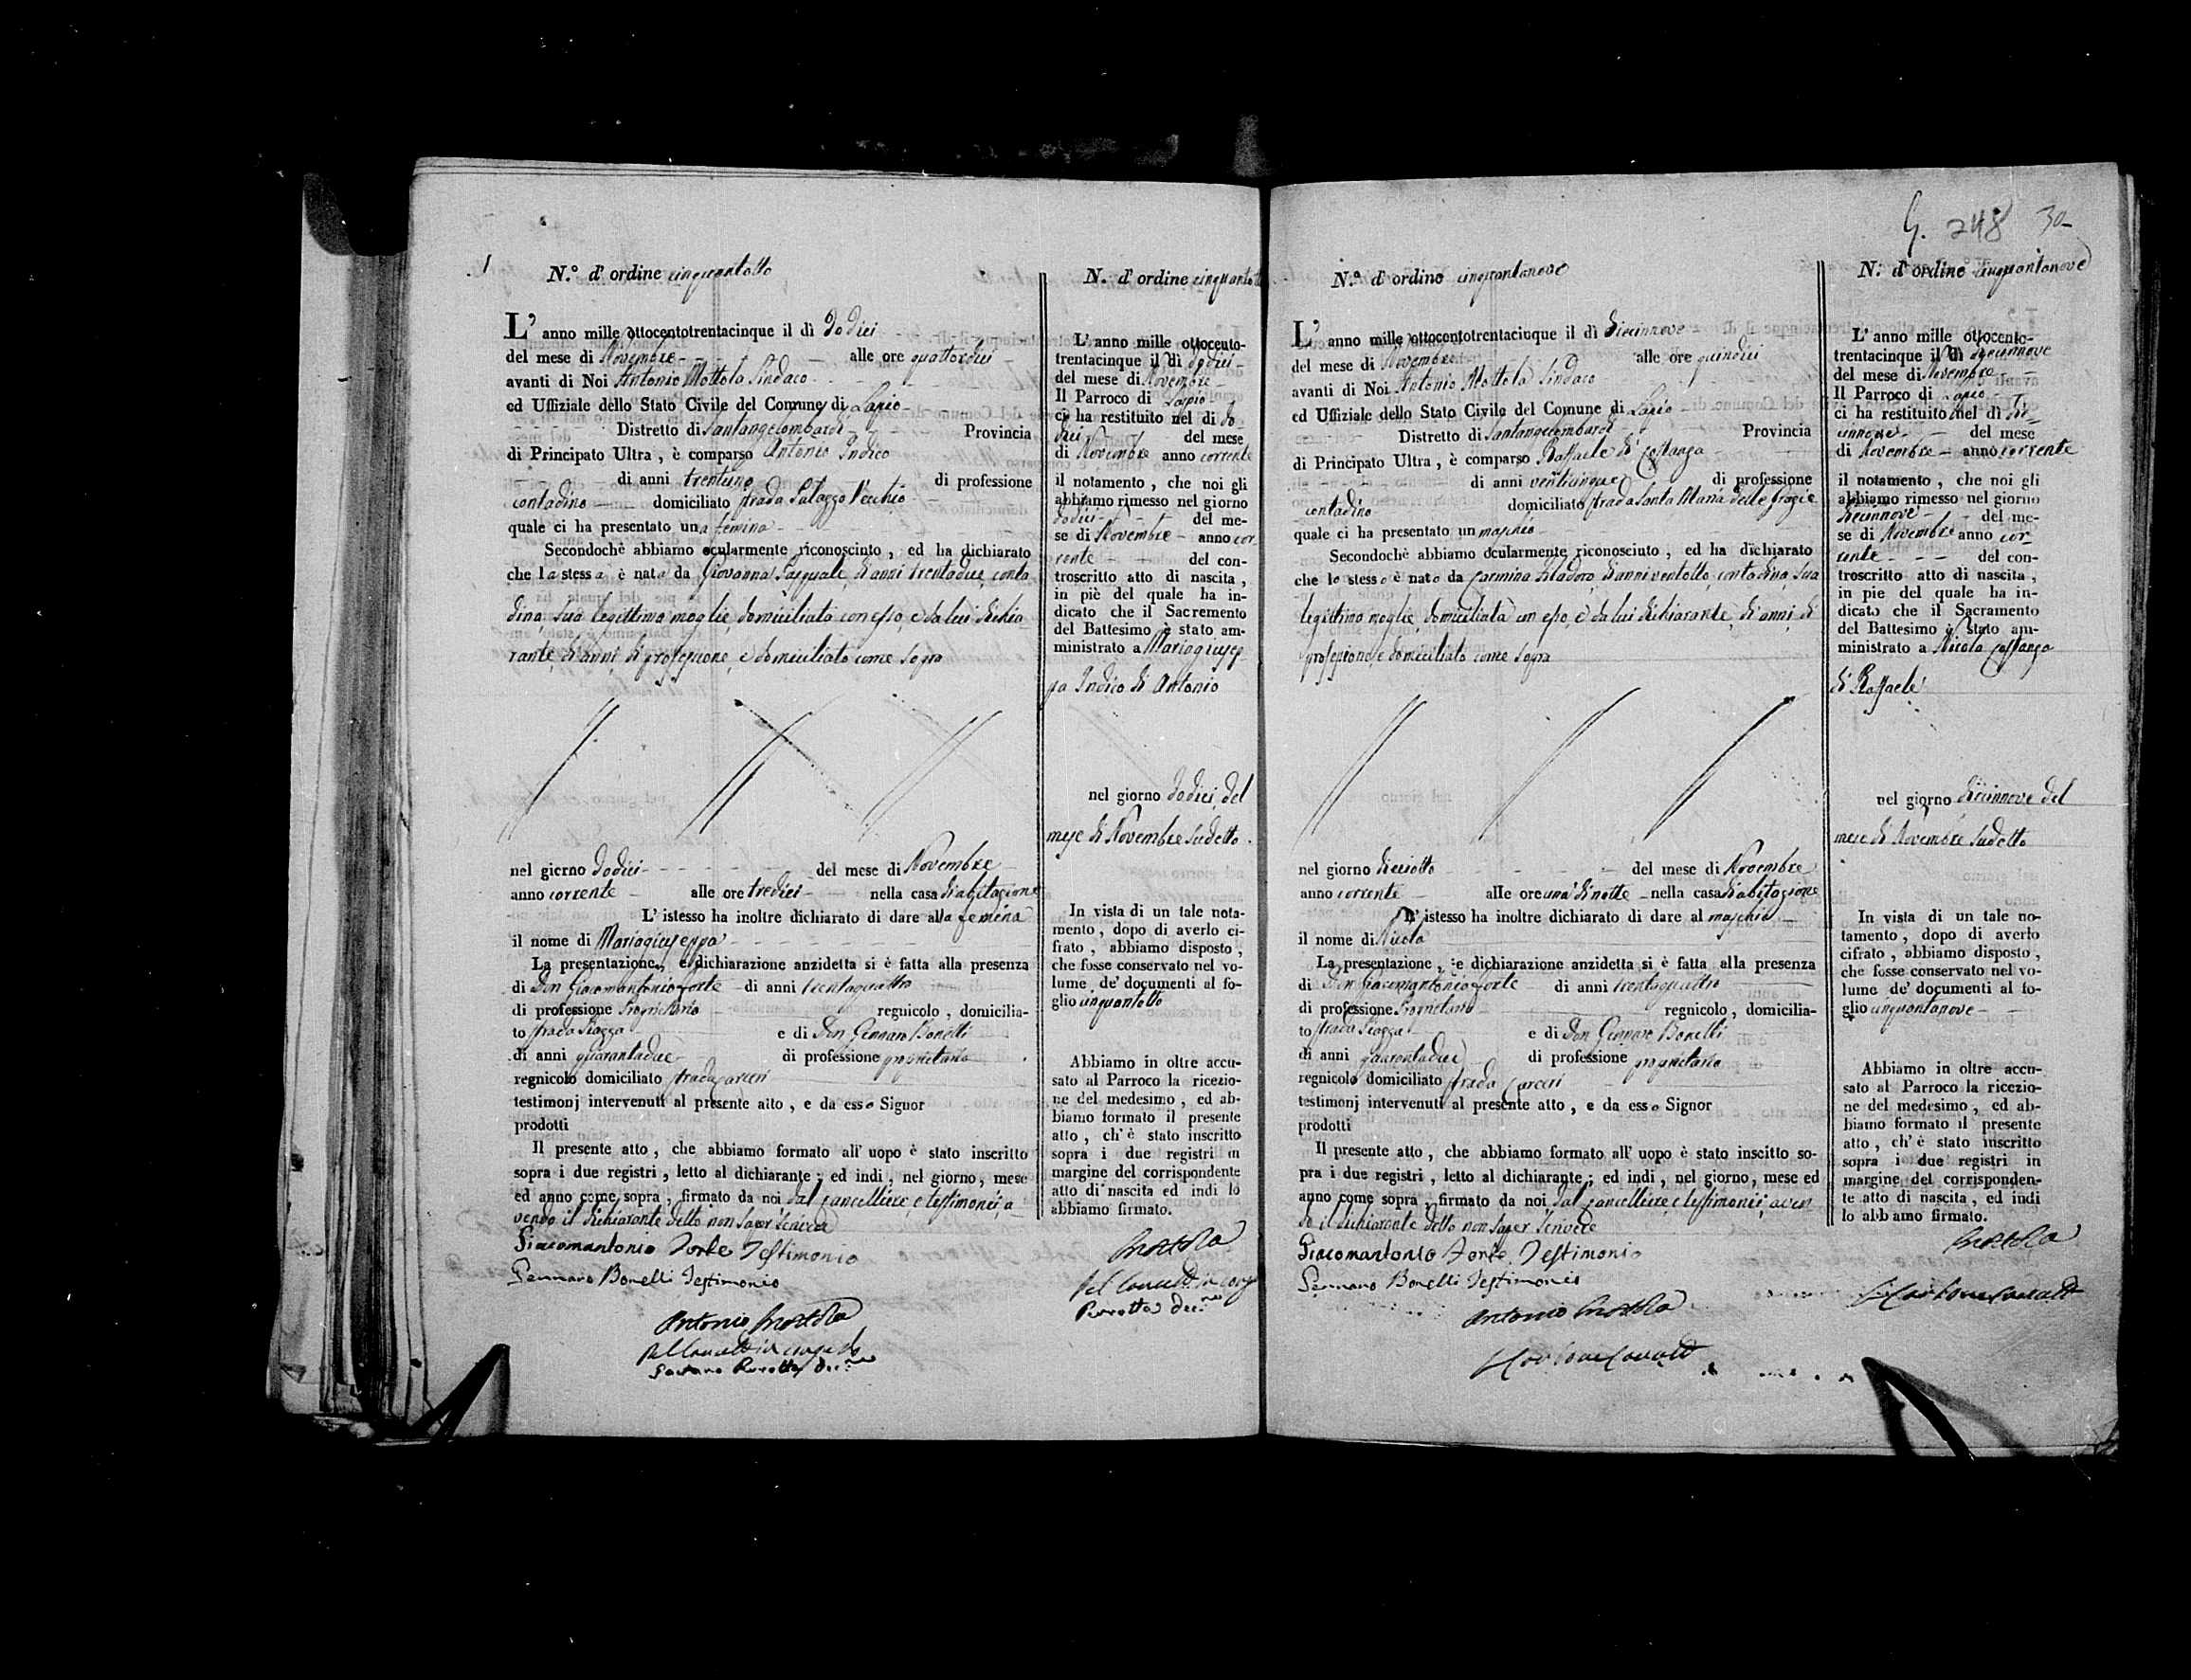 N.° d'ordine cinquantotto
L'anno mille ottocentotrentacinque il dì Dodici
del mese di Novembre alle ore quattordici
avanti di Noi Antonio Mottola Sindaco
ed Uffiziale dello Stato Civile del Comune di Lapio
Distretto di Santangelombardi Provincia
di Principato Ultra, è comparso Antonio Indico
di anni trentuno di professione
contadino domiciliato strada Palazzo Vecchio
quale ci ha presentato una femina
Secondochè abbiamo ocularmente riconosciuto, ed ha dichiarato
che la stessa è nata da Giovanna Pasquale, di anni trentadue, conta
dina, sua legittima moglie, domiciliata con esso, e da lui dichia
rante, di anni, di professione, e domiciliato come sopra
nel giorno Dodici del mese di Novembre
anno corrente alle ore tredici nella casa di abitazione
L'istesso ha inoltre dichiarato di dare alla femina
il nome di Mariagiuseppa
La presentazione, e dichiarazione anzidetta si è fatta alla presenza
di Don Giacomantonio Forte di anni trentaquattro
di professione Proprietario regnicolo, domicilia-
to strada Piazza e di Don Gennaro Bonelli
di anni quarantadue di professione proprietario
regnicolo domiciliato strada Carceri
testimonj intervenuti al presente atto, e da esso Signor
prodotti
Il presente atto, che abbiamo formato all'uopo è stato inscritto
sopra i due registri, letto al dichiarante; ed indi, nel giorno, mese
ed anno come sopra, firmato da noi dal Cancelliere, e testimonii, a
vendo il dichiarante detto non saper scrivere
Giacomantonio Forte Testimonio
Gennaro Bonelli Testimonio
Antonio Mottola
Gaetano Perrotta Dec.ne
N. d'ordine cinquantotto
L'anno mille ottocento-
trentacinque il dì dodici
del mese di Novembre
Il Parroco di Lapio
ci ha restituito nel dì do
dici del mese
di Novembre anno corrente
il notamento, che noi gli
abbiamo rimesso nel giorno
dodici del me-
se di Novembre anno cor
rente del con-
troscritto atto di nascita,
in piè del quale ha in-
dicato che il Sacremento
del Battesimo è stato am-
ministrato a Mariagiusep
pa Indico di Antonio
nel giorno dodici del
mese di Novembre sudetto
In vista di un tale nota-
mento, dopo di averlo ci-
frato, abbiamo disposto,
che fosse conservato nel vo-
lume de' documenti al fo-
glio cinquantotto
Abbiamo in oltre accu-
sato al Parroco la ricezio-
ne del medesimo, ed ab-
biamo formato il presente
atto, ch'è stato inscritto
sopra i due registri in
margine del corrispondente
atto di nascita ed indi lo
abbiamo firmato.
Mottola
Perrotta Dec.ne
G. 248 30
N.° d'ordine cinquantanove
L'anno mille ottocentotrentacinque il dì Diecinnove
del mese di Novembre alle ore quindici
avanti di Noi Antonio Mottola Sindaco
ed Uffiziale dello Stato Civile del Comune di Lapio
Distretto di Santangelombardi Provincia
di Principato Ultra, è comparso Raffaele di Costanza
di anni venticinque di professione
contadino domiciliato strada Santa Maria delle Grazie
quale ci ha presentato un maschio
Secondochè abbiamo ocularmente riconosciuto, ed ha dichiarato
che lo stesso è nato da Carmina di anni ventotto, contadina, sua
legittima moglie, domiciliata con esso, e da lui dichiarante, di anni, di
professione, e domiciliato come sopra
nel giorno dieciotto del mese di Novembre
anno corrente alle ore una di notte nella casa di abitazione
L'istesso ha inoltre dichiarato di dare al maschio
il nome di Nicola
La presentazione, e dichiarazione anzidetta si è fatta alla presenza
di Don Giacomantonio Forte di anni trentaquattro
di professione Proprietario regnicolo, domicilia-
to strada Piazza e di Don Gennaro Bonelli
di anni quarantadue di professione proprietario
regnicolo domiciliato strada Carceri
testimonj intervenuti al presente atto, e da esso Signor
prodotti
Il presente atto, che abbiamo formato all'uopo è stato inscitto so-
pra i due registri, letto al dichiarante; ed indi, nel giorno, mese ed
anno come sopra, firmato da noi dal Cancelliere, e testimonii, aven
do il dichiarante detto non saper scrivere
Giacomantonio Forte Testimonio
Gennaro Bonelli Testimonio
Antonio Mottola
N. d'ordine cinquantanove
L'anno mille ottocento-
trentacinque il dì diecinnove
del mese di Novembre
Il Parroco di Lapio
ci ha restituito nel dì die
cinnove del mese
di Novembre anno corrente
il notamento, che noi gli
abbiamo rimesso nel giorno
diecinnove del me-
se di Novembre anno cor
rente del con-
troscritto atto di nascita,
in pie del quale ha in-
dicato che il Sacramento
del Battesimo è stato am-
ministrato a Nicola Costanza
di Raffaele
nel giorno diecinnove del
mese di Novembre sudetto
In vista di un tale no-
tamento, dopo di averlo
cifrato, abbiamo disposto,
che fosse conservato nel vo-
lume de' documenti al fo-
glio cinquantanove
Abbiamo in oltre accu-
sato al Parroco la ricezio-
ne del medesimo, ed ab-
biamo formato il presente
atto, ch'è stato inscritto
sopra i due registri in
margine del corrisponden-
te atto di nascita, ed indi
lo abbiamo firmato.
Mottola